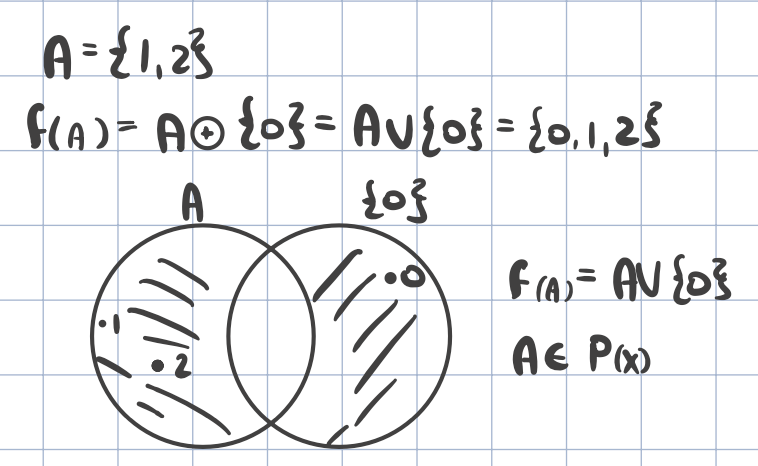 A = {1,2}
f(A) = A⊕{0} = A∪{0} = {0,1,2}
A {0}
.0
.1
.2
f(A) = A∪{0}
A ∈ P(x)